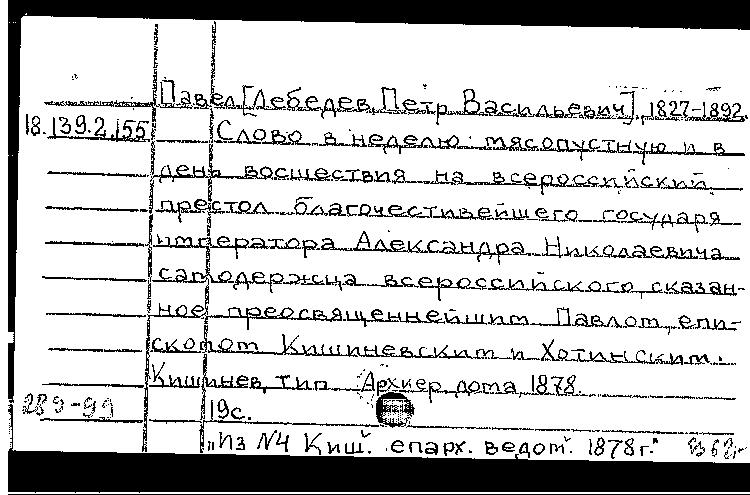 Павел [Лебедев, Петр Васильевич], 1827-1892.
18.139.2.155
Слово в неделю мясопустную и в
день восшествия на всероссийский
престол благочестивейшего государя
императора Александра Николаевича
самодержца всероссийского, сказан-
ное преосвященнейшим Павлом, епи-
скопом Кишиневским и Хотинским.
Кишинев, тип. Архиер. дома, 1878.
289-99
19с.
"Из №4 Киш. епарх. ведом. 1878г."